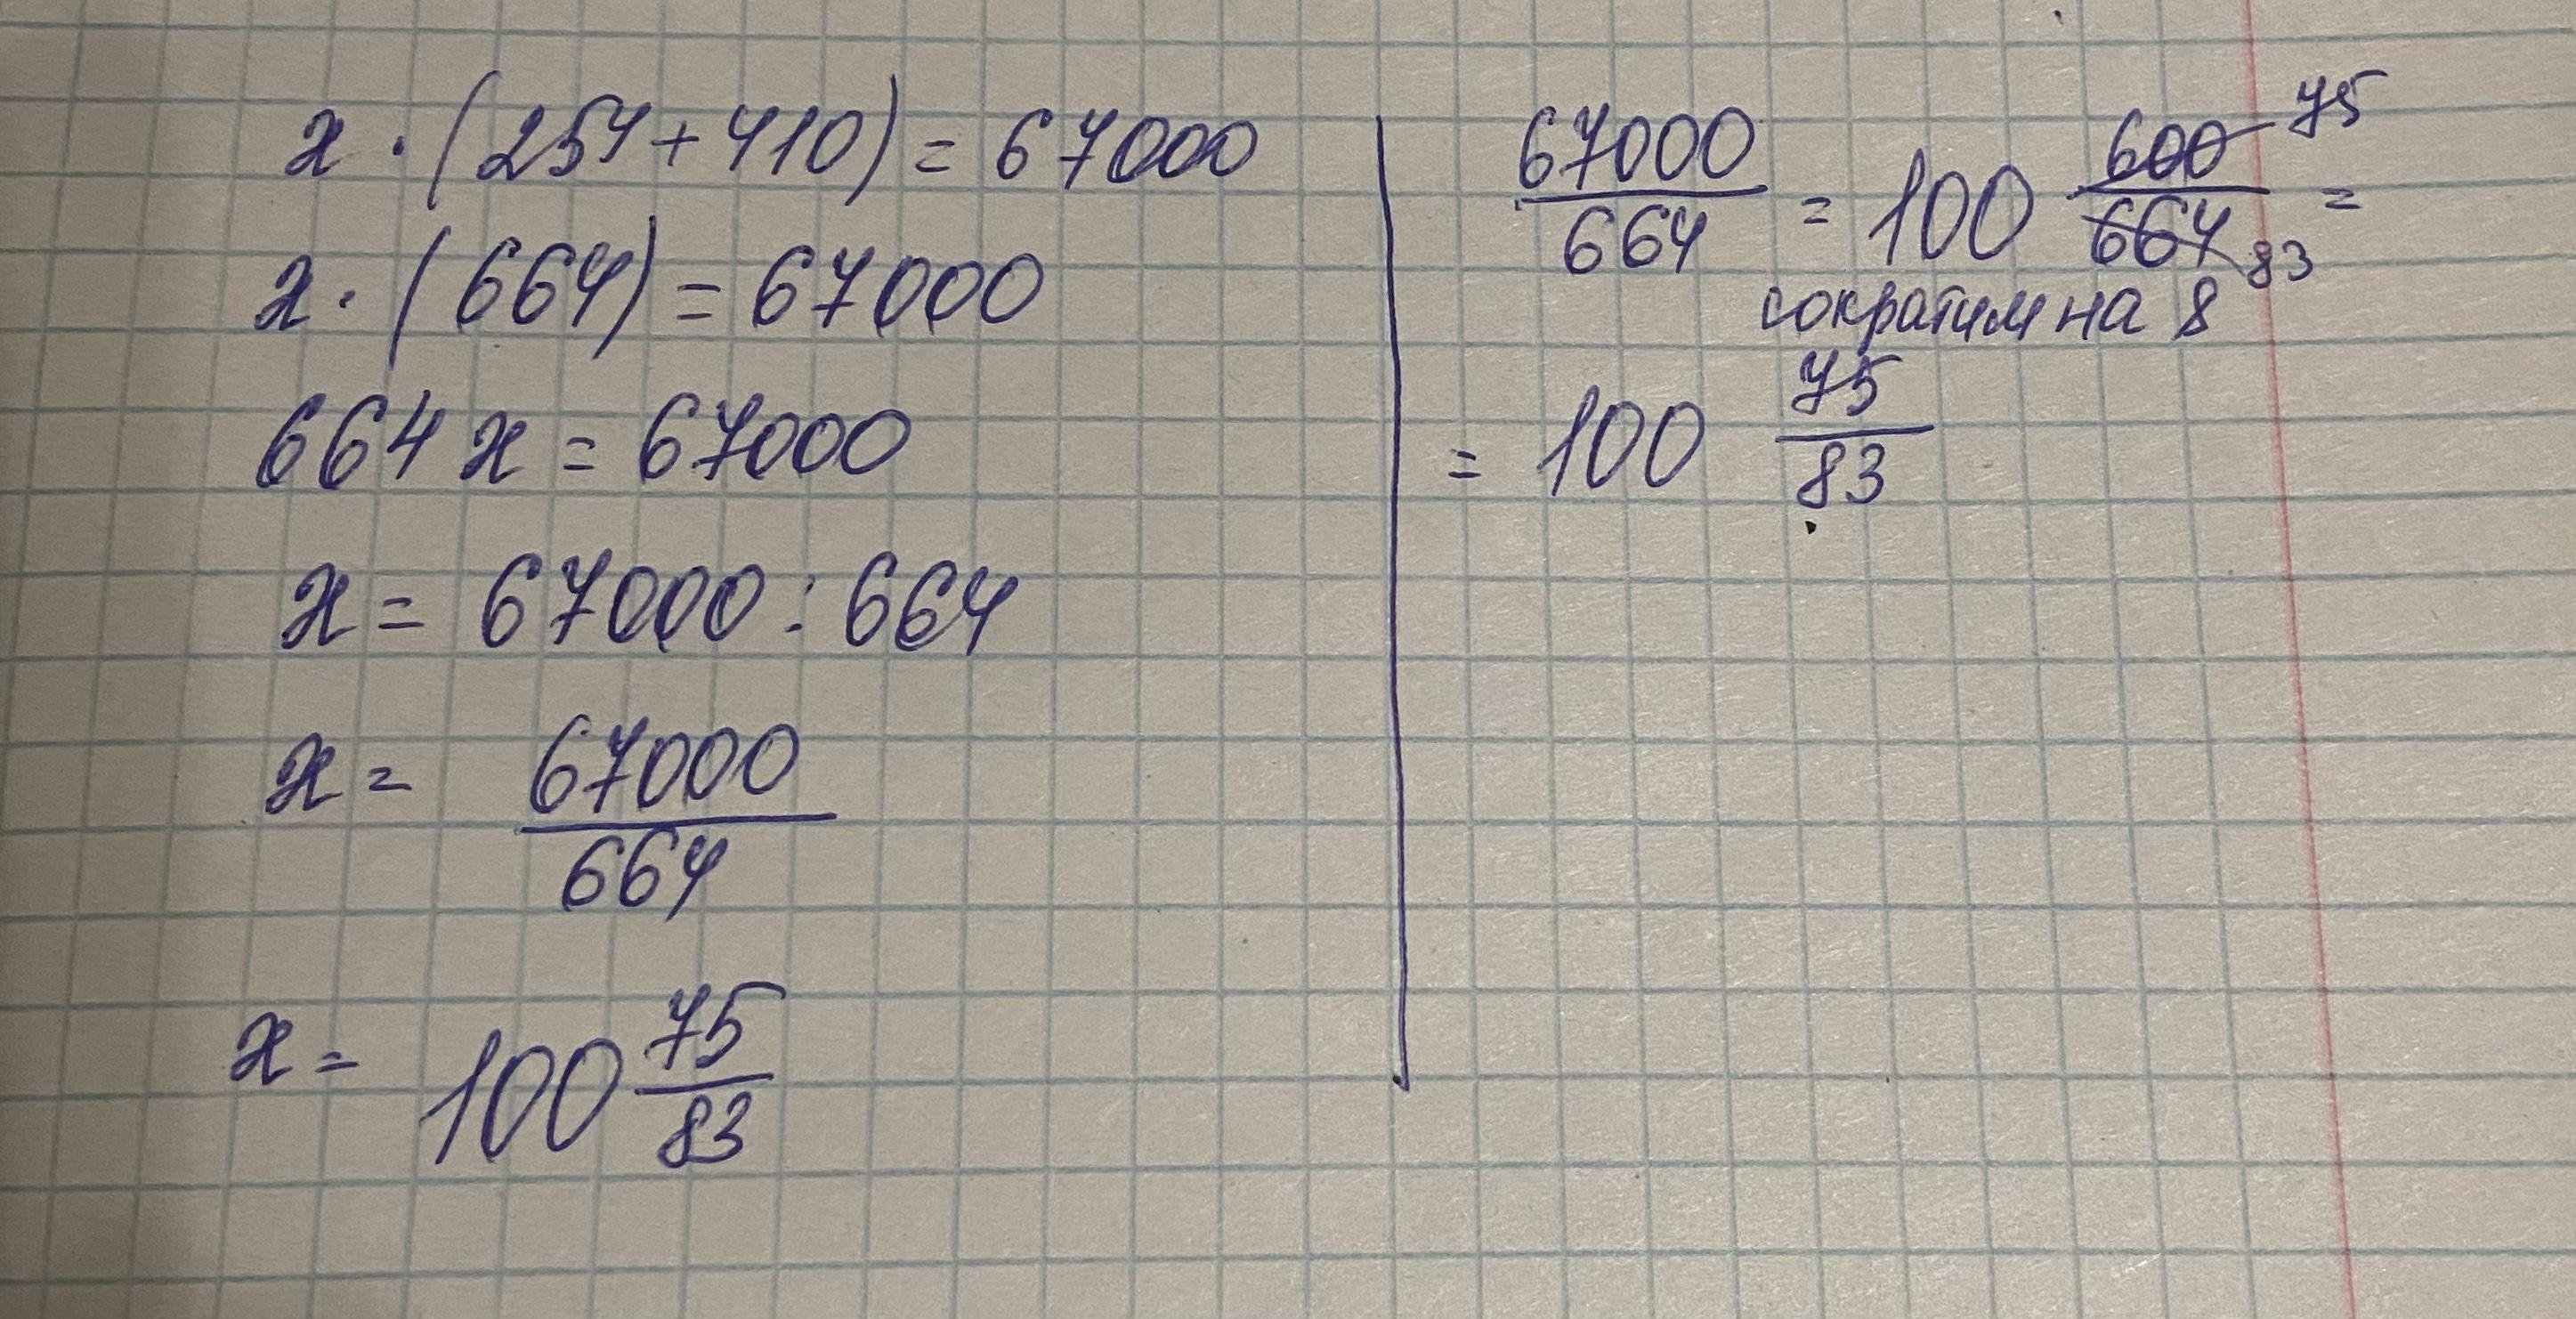 x · (254 + 410) = 67000
x · (664) = 67000
664 x = 67000
x = 67000 : 664
x = 67000/664
x = 100 75/83
67000/664 = 100 600/664 75 83 =
сократим на 8
= 100 75/83